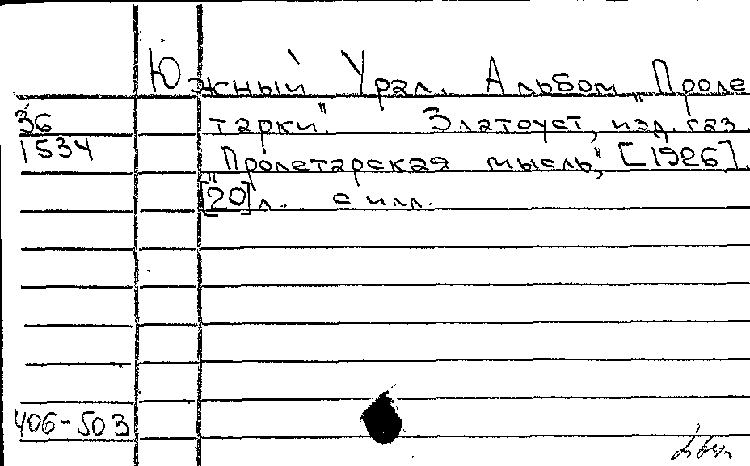 Южный Урал. Альбом „Проле
36
тарки". Златоуст, изд. газ.
1534
„Пролетарская мысль", [1926].
[20] л. с илл.
406-503